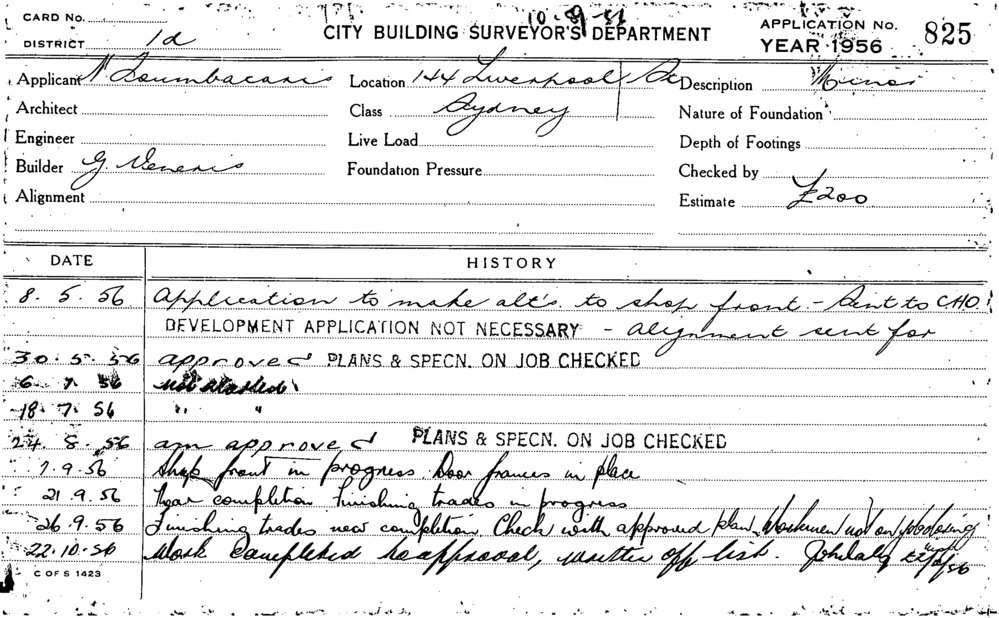 10.8.56
CARD No.
DISTRICT 1d
CITY BUILDING SURVEYOR'S DEPARTMENT
APPLICATION No. 825
YEAR 1956
Applicant N Coumbacaris
Location 144 Liverpool St
Description Minor
Architect
Class Sydney
Nature of Foundation
Engineer
Live Load
Depth of Footings
Builder G. Veneris
Foundation Pressure
Checked by
Alignment
Estimate £200
DATE HISTORY
8.5.56 Application to make alt's. to shop front - Sent to CHO.
DEVELOPMENT APPLICATION NOT NECESSARY - alignment sent for
30.5.56 approved PLANS & SPECN. ON JOB CHECKED
6.7.56 not started
18.7.56 " "
24.8.56 am approved PLANS & SPECN. ON JOB CHECKED
7.9.56 Shop front in progress Door frames in place
21.9.56 Near completion Finishing trades in progress
26.9.56 Finishing trades near completion. Check with approved plan. Workmen not on job
22.10.56 Work Completed to approval, written off list.
C OF S 1423